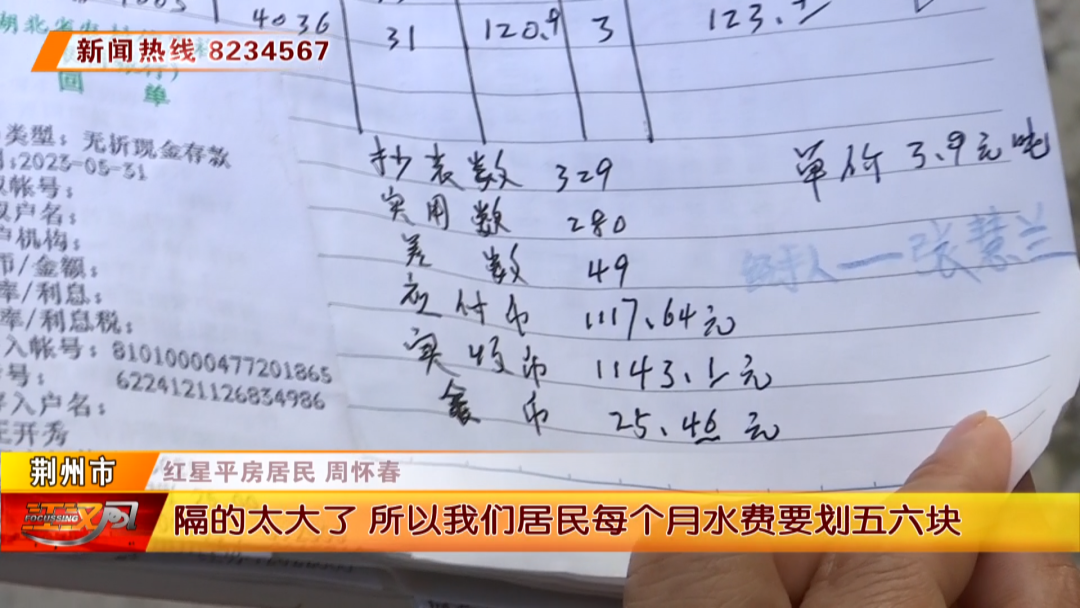 4036 31 120.9 3
新闻热线 8234567
回 单
类型：无折现金存款
2023-05-31
帐号：
户名：
机构：
币/金额：
率/利息：
率/利息税：
入帐号：81010000477201865
6224121126834986
入户名：
王开秀
抄表数 329
单价 3.9元吨
实用数 280
差数 49
经手人—张慧兰
应付币 1117.64元
实收币 1143.1元
余币 25.46元
荆州市
红星平房居民 周怀春
FOCUSSING
隔的太大了 所以我们居民每个月水费要划五六块